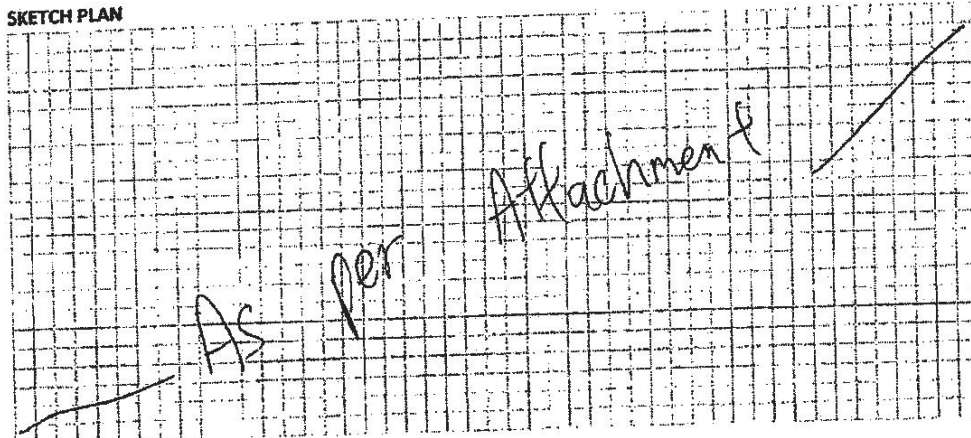 SKETCH PLAN
As per Attachment